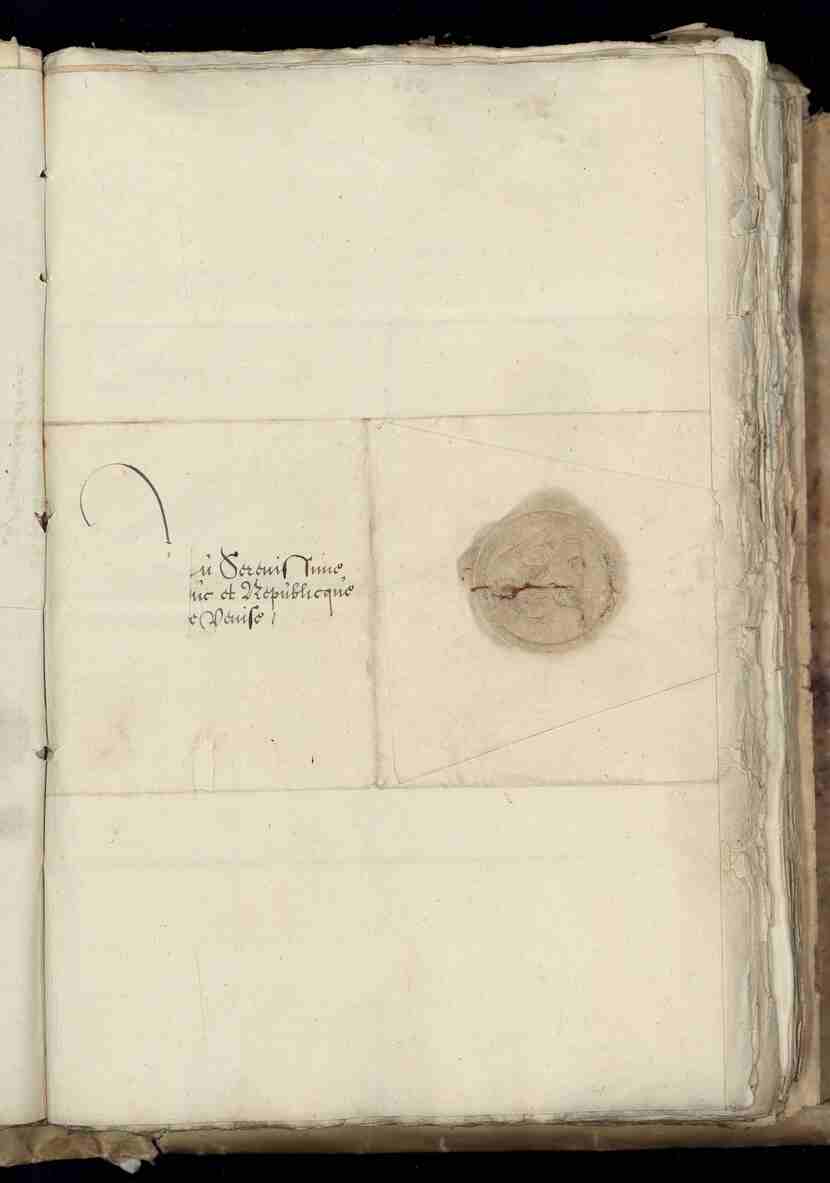 u Serenissime
uc et Republicque
e Venise /